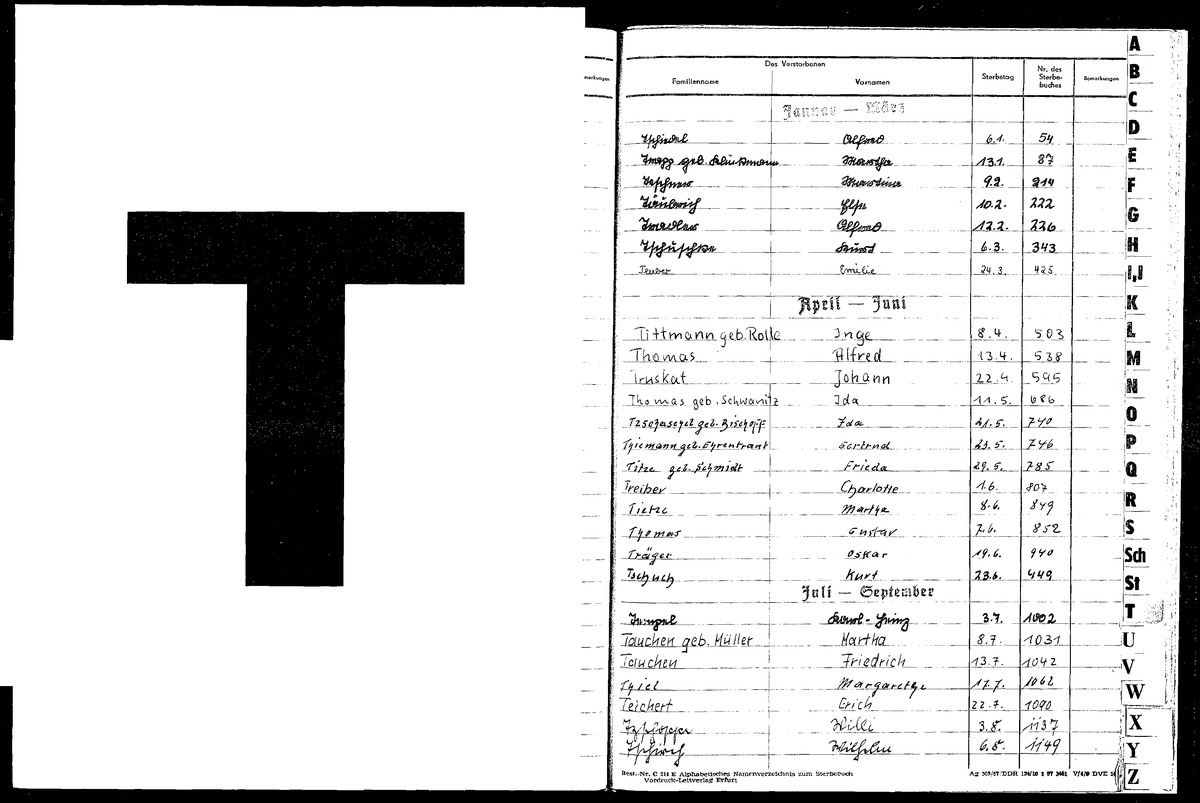 T
merkungen
Des Verstorbenen
Familienname Vornamen Sterbetag Nr. des Sterbe- buches Bemerkungen
Januar — März
Tschiedel Alfred 6.1. 54
Trapp geb. Martha 13.1. 87
Teschner Martina 9.2. 214
Täuberich Else 10.2. 222
Tradler Alfred 12.2. 226
Tschuschke Kurt 6.3. 343
Teuber Emilie 24.3. 425
April — Juni
Tittmann geb. Rolle Inge 8.4. 503
Thomas Alfred 13.4. 538
Truskat Johann 22.4. 545
Thomas geb. Schwanitz Ida 11.5. 686
Tzschaschel geb. Bischoff Ida 21.5. 740
Thiemann geb. Ehrentraut Gertrud 23.5. 746
Titze geb. Schmidt Frieda 29.5. 785
Treiber Charlotte 1.6. 807
Tietze Martha 8.6. 849
Thomas Gustav 7.6. 852
Träger Oskar 19.6. 940
Tschuch Kurt 23.6. 449
Juli — September
Tempel Karl-Heinz 3.7. 1002
Tauchen geb. Müller Martha 8.7. 1031
Tauchen Friedrich 13.7. 1042
Thiel Margarethe 17.7. 1062
Teichert Erich 22.7. 1090
Willi 3.8. 1137
Tschirch Wilhelm 6.8. 1149
Best.-Nr. C 214 E Alphabetisches Namenverzeichnis zum Sterbebuch
Vordruck-Leitverlag Erfurt
A
B
C
D
E
F
G
H
I,J
K
L
M
N
O
P
Q
R
S
Sch
St
T
U
V
W
X
Y
Z